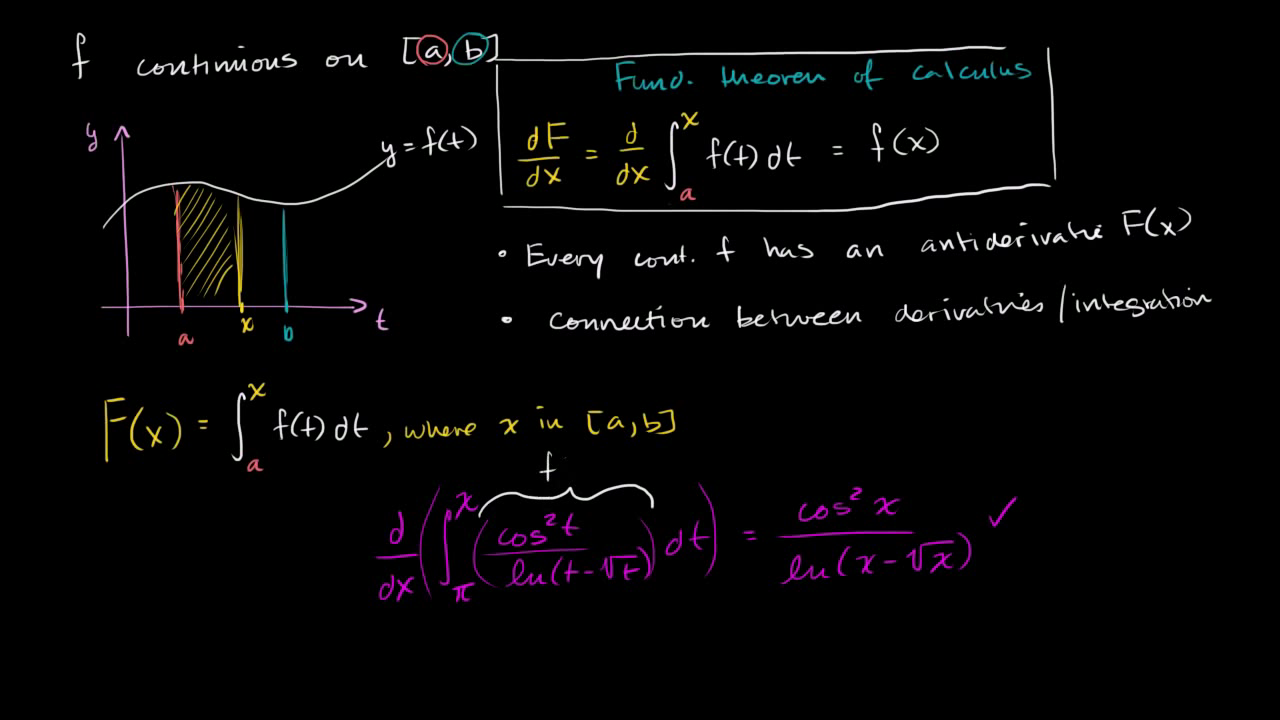 f continuous on [a, b]
Fund. theorem of calculus
dF/dx = d/dx ∫_a^x f(t) dt = f(x)
y
y = f(t)
a x b
t
• Every cont. f has an antiderivative F(x)
• connection between derivatives/integration
F(x) = ∫_a^x f(t) dt, where x in [a,b]
f
d/dx (∫_π^x (cos²t / ln(t-√t)) dt) = cos² x / ln(x-√x) ✓